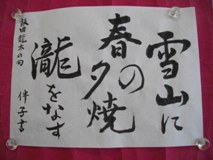 雪山に
春の夕焼
瀧をなす
飯田龍太の句
伴子書